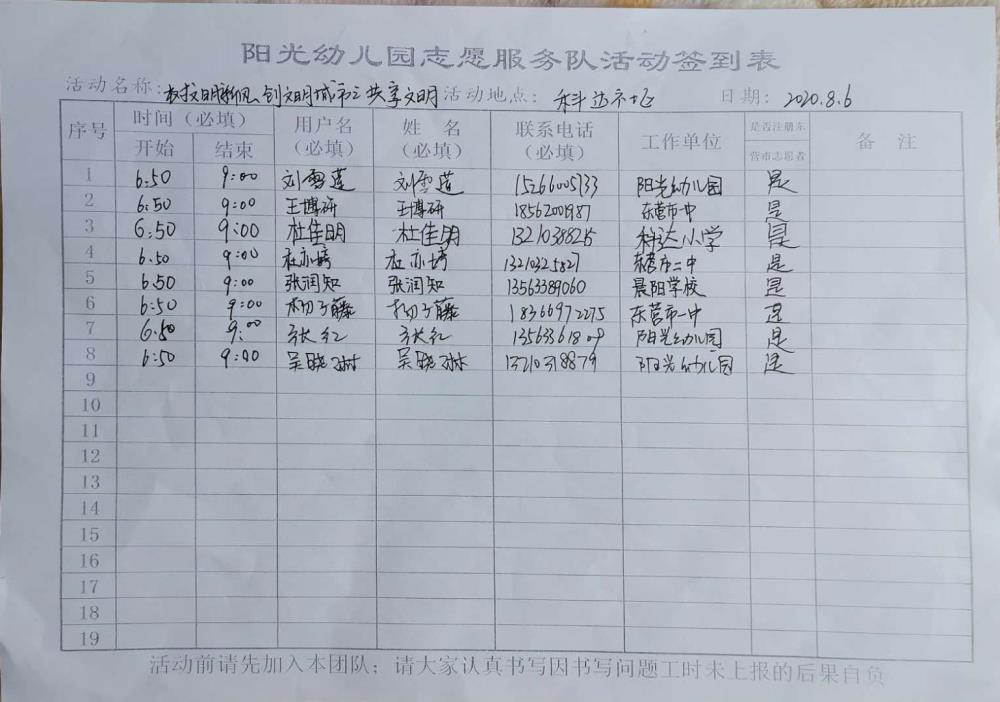 阳光幼儿园志愿服务队活动签到表
活动名称: 创文明城市之共享文明 活动地点: 科达社区 日期: 2020.8.6
序号 时间（必填） 用户名（必填） 姓 名（必填） 联系电话（必填） 工作单位 是否注册东营市志愿者 备 注
开始 结束
1 6:50 9:00 刘雪莲 刘雪莲 15266005733 阳光幼儿园 是
2 6:50 9:00 王博研 王博研 18562001987 东营市一中 是
3 6:50 9:00 杜佳明 杜佳明 13210388215 科达小学 是
4 6:50 9:00 杜亦 杜亦 13210325827 东营市二中 是
5 6:50 9:00 张润知 张润知 13563389060 晨阳学校 是
6 6:50 9:00 杨子藤 杨子藤 18366972275 东营市一中 是
7 6:50 9:00 张红 张红 13563361809 阳光幼儿园 是
8 6:50 9:00 吴晓琳 吴晓琳 13210318879 阳光幼儿园 是
9
10
11
12
13
14
15
16
17
18
19
活动前请先加入本团队；请大家认真书写因书写问题工时未上报的后果自负